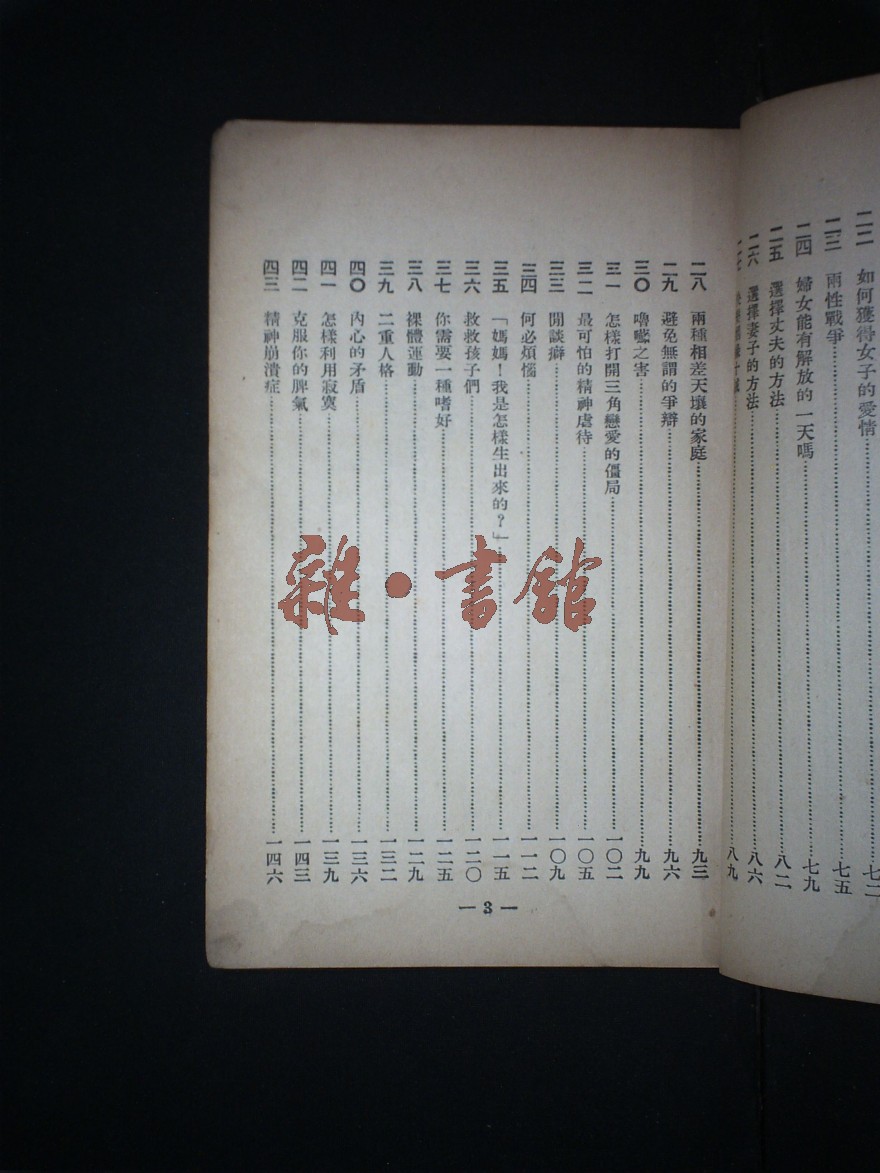 二二 如何獲得女子的愛情……七二
二三 兩性戰爭……七五
二四 婦女能有解放的一天嗎……七九
二五 選擇丈夫的方法……八二
二六 選擇妻子的方法……八六
二七……八九
二八 兩種相差天壤的家庭……九三
二九 避免無謂的爭辯……九六
三〇 嚕囌之害……九九
三一 怎樣打開三角戀愛的僵局……一〇二
三二 最可怕的精神虐待……一〇五
三三 閒談癖……一〇九
三四 何必煩惱……一一二
三五 「媽媽!我是怎樣生出來的?」……一一五
三六 救救孩子們……一二〇
三七 你需要一種嗜好……一二五
三八 裸體運動……一二九
三九 二重人格……一三二
四〇 內心的矛盾……一三六
四一 怎樣利用寂寞……一三九
四二 克服你的脾氣……一四三
四三 精神崩潰症……一四六
— 3 —
雜·書館